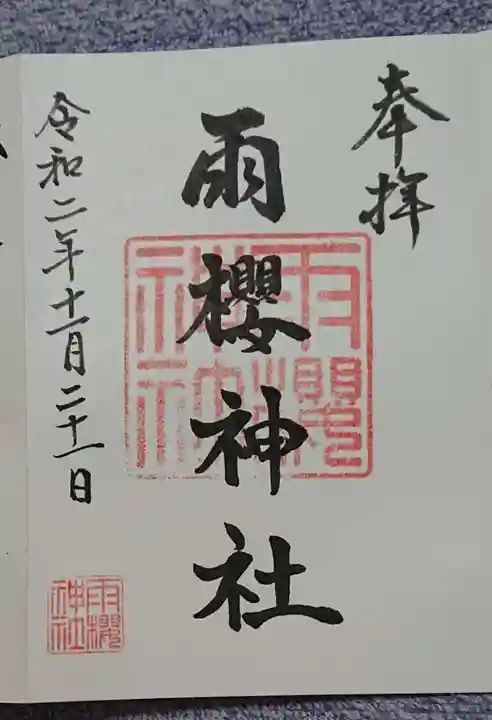 奉拝
雨櫻神社
雨櫻神社
令和二年十一月二十一日
雨櫻神社